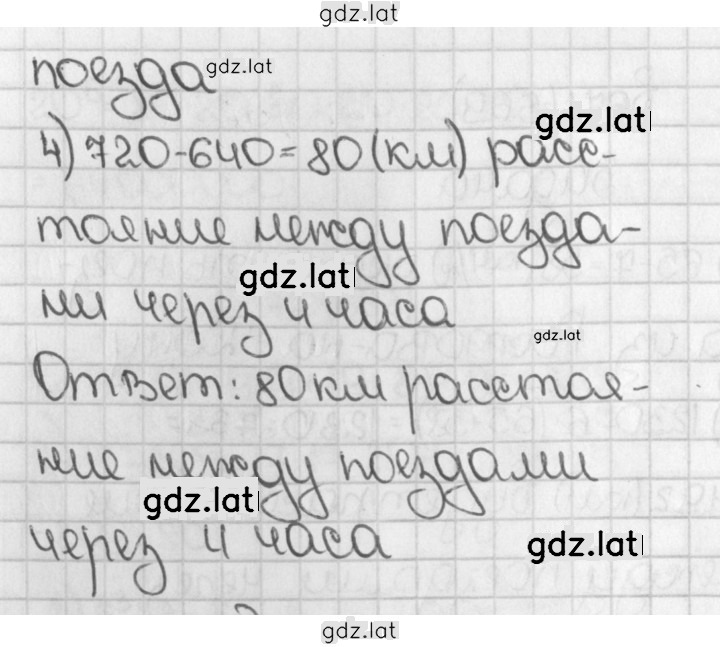 gdz.lat
поезда gdz.lat
gdz.lat
4) 720-640=80(км) расс-
тояние между поезда-
gdz.lat
ми через 4 часа
gdz.lat
Ответ: 80км расстоя-
ние между поездами
gdz.lat
через 4 часа gdz.lat
gdz.lat